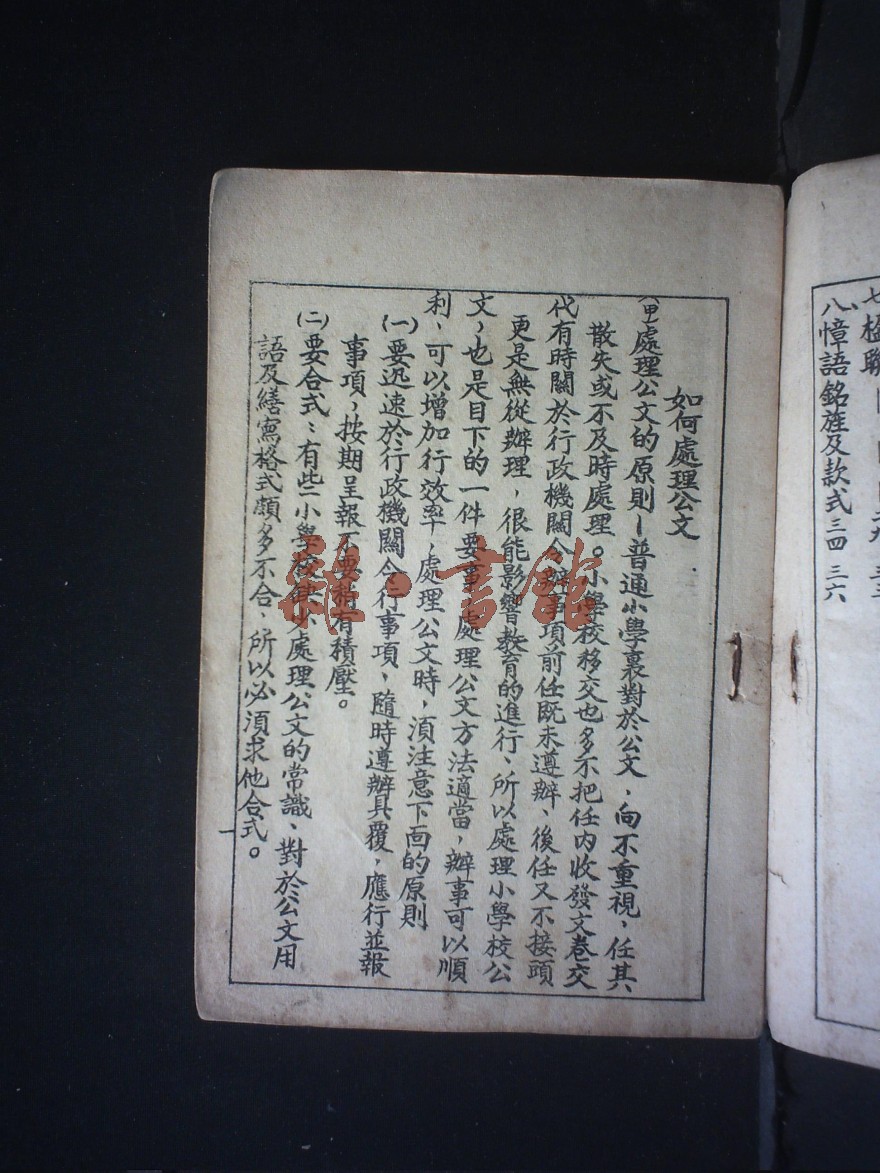 七 楹聯
八、幛語銘旌及款式三四 三六
如何處理公文
(甲)處理公文的原則—普通小學裏對於公文，向不重視，任其
散失或不及時處理。小學校移交也多不把任內收發文卷交
代有時關於行政機關令辦事項前任既未遵辦、後任又不接頭
更是無從辦理，很能影響教育的進行、所以處理小學校公
文，也是目下的一件要事，處理公文方法適當，辦事可以順
利、可以增加行效率，處理公文時，須注意下面的原則
(一)要迅速於行政機關令行事項，隨時遵辦具覆，應行並報
事項，按期呈報不要稍有積壓。
(二)要合式：有些小學校缺少處理公文的常識、對於公文用
語及繕寫格式頗多不合，所以必須求他合式。
一
雜·書館